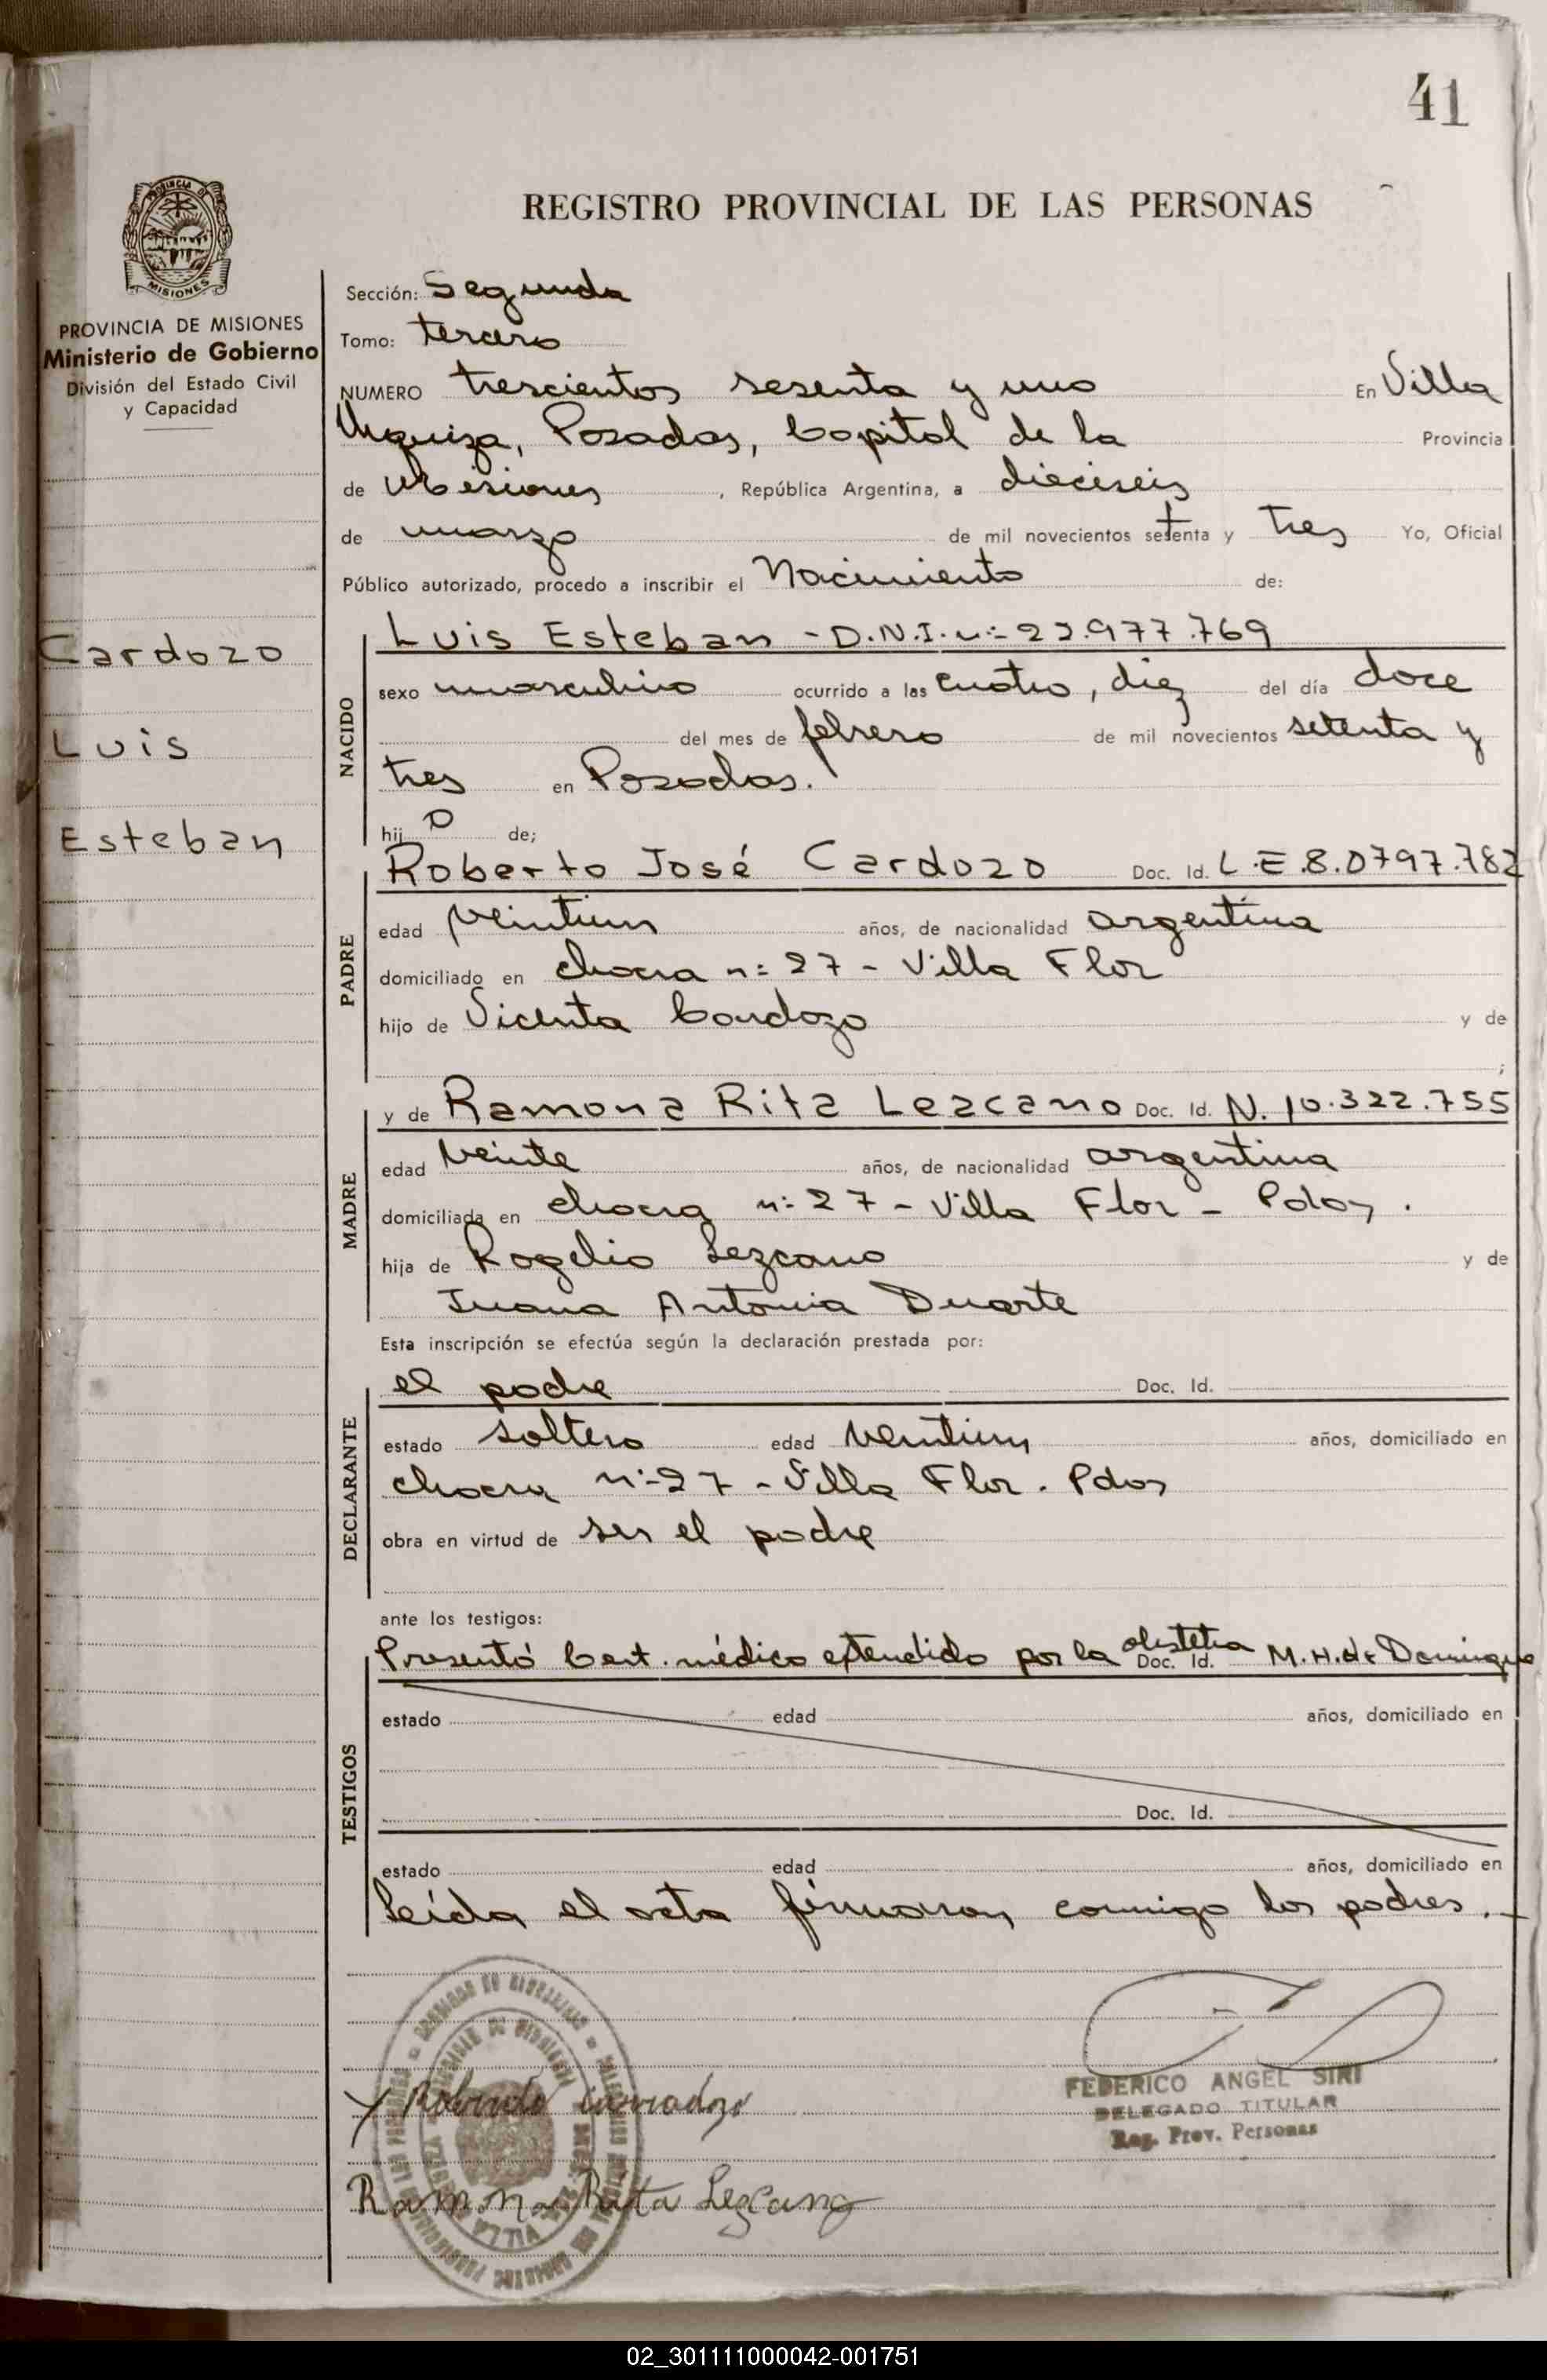 41
REGISTRO PROVINCIAL DE LAS PERSONAS
PROVINCIA DE MISIONES
Ministerio de Gobierno
División del Estado Civil
y Capacidad
Cardozo
Luis
Esteban
Sección: Segunda
Tomo: tercero
NUMERO trescientos sesenta y uno En Villa
Urquiza, Posadas, Capital de la Provincia
de Misiones, República Argentina, a dieciseis
de marzo de mil novecientos setenta y tres Yo, Oficial
Público autorizado, procedo a inscribir el Nacimiento de:
NACIDO
Luis Esteban - D.N.I. n:- 22.977.769
sexo masculino ocurrido a las cuatro, diez del día doce
del mes de febrero de mil novecientos setenta y
tres en Posadas.
hijo de;
PADRE
Roberto José Cardozo Doc. Id. L.E.8.0797.782
edad veintiun años, de nacionalidad argentina
domiciliado en chacra n:27 - Villa Flor
hijo de Vicenta Cardozo y de
;
MADRE
y de Ramona Rita Lezcano Doc. Id. N. 10.322.755
edad veinte años, de nacionalidad argentina
domiciliada en chacra n:27 - Villa Flor - Pdas.
hija de Rogelio Lezcano y de
Juana Antonia Duarte
Esta inscripción se efectúa según la declaración prestada por:
DECLARANTE
el padre Doc. Id.
estado soltero edad veintiun años, domiciliado en
chacra n:-27 - Villa Flor. Pdas
obra en virtud de ser el padre
ante los testigos:
TESTIGOS
Presentó Cert. médico extendido por la obstetra Doc. Id. M.H. de
estado edad años, domiciliado en
Doc. Id.
estado edad años, domiciliado en
Leída el acta firmaron conmigo los padres.
FEDERICO ANGEL SIRI
DELEGADO TITULAR
Reg. Prov. Personas
Ramona Rita Lezcano
02_301111000042-001751